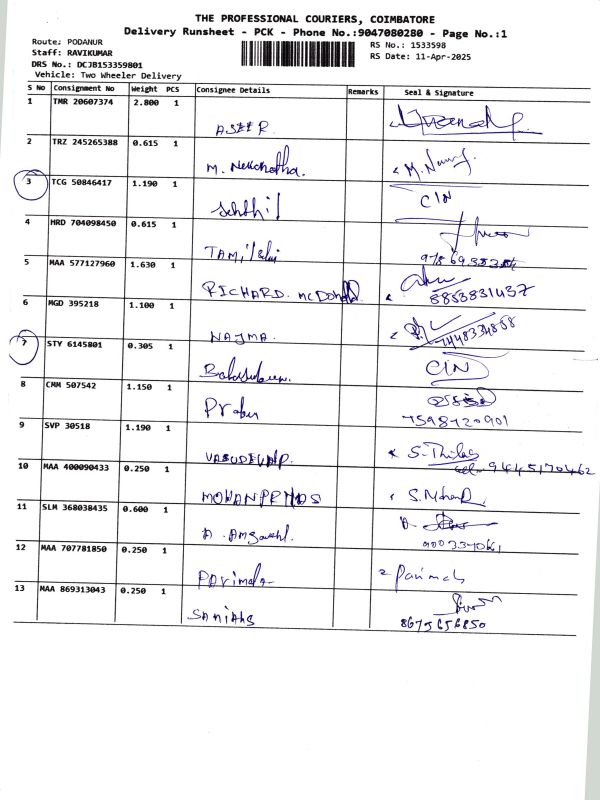 THE PROFESSIONAL COURIERS, COIMBATORE
Delivery Runsheet - PCK - Phone No.:9047080280 - Page No.:1
Route: PODANUR
RS No.: 1533598
Staff: RAVIKUMAR
RS Date: 11-Apr-2025
DRS No.: DCJB153359801
Vehicle: Two Wheeler Delivery
S No Consignment No Weight PCS Consignee Details Remarks Seal & Signature
1 TMR 20607374 2.800 1
ASEER
2 TRZ 245265388 0.615 1
M.
3 TCG 50846417 1.190 1 CIN
Senthil
4 HRD 704098450 0.615 1
TAMilselvi
5 MAA 577127960 1.630 1
RICHARD. McDonald 8853831437
6 MGD 395218 1.100 1
NAJMA.
7 STY 6145801 0.305 1 CIN
8 CMM 507542 1.150 1
Prabu 7598720901
9 SVP 30518 1.190 1
VASUDEVAN P. S. Thilag
9445170462
10 MAA 400090433 0.250 1
S.
11 SLM 368038435 0.600 1
A.
12 MAA 707781850 0.250 1
Parimala Parimala
13 MAA 869313043 0.250 1
8675656850